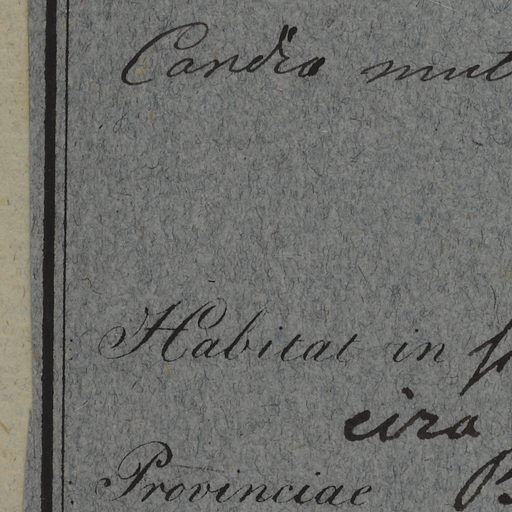 Candia mut
Habitat in
cira
Provinciae